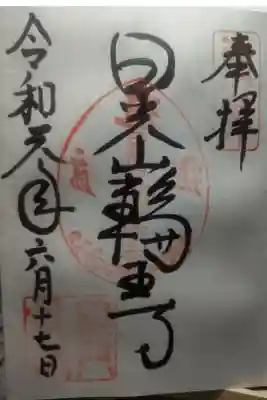 奉拝
日光山輪王寺
令和元年六月十七日